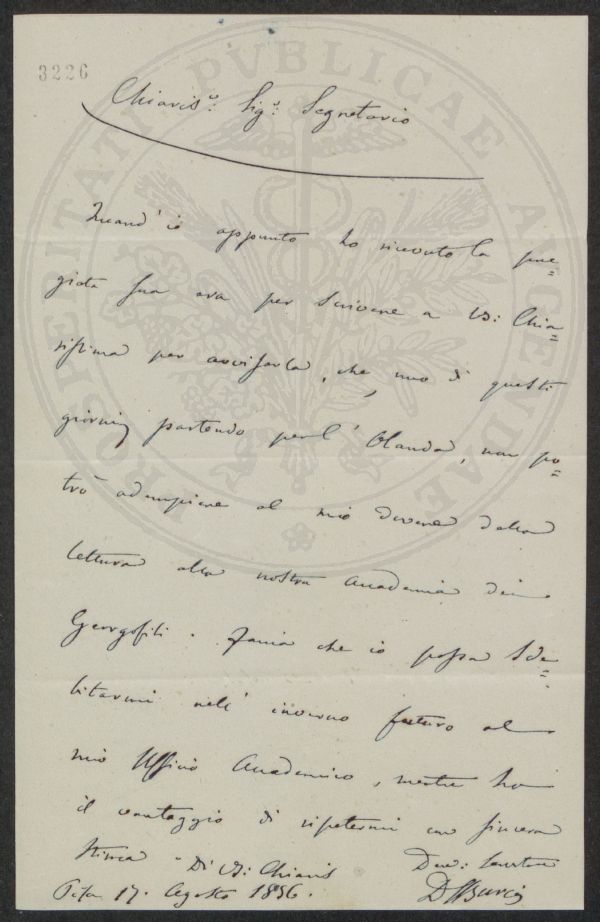 3226
PROSPERITATI PVBLICAE AVGENDAE
Chiaris.º Sig.º Segretario
Quand'io appunto ho ricevuto la pre=
giata sua era per scrivere a VS: Chia=
rissima per avvisarla, che, uno di questi
giorni, partendo per l'Olanda, non po=
trò adempiere al mio dovere della
lettura alla nostra Accademia dei
Georgofili. Zania che io possa sde=
bitarmi nell'inverno futuro al
mio Ufficio Accademico, mentre ho
il vantaggio di ripetermi con sincera
stima Di VS: Chiaris
Dev: Servitore
Pisa 17. Agosto 1856.